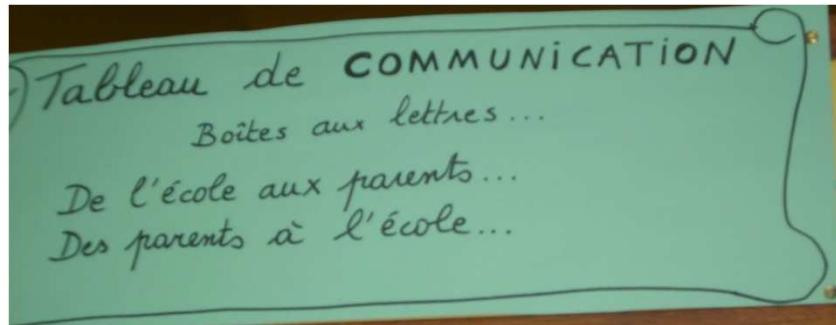 Tableau de COMMUNiCATiON
Boîtes aux lettres...
De l'école aux parents...
Des parents à l'école...